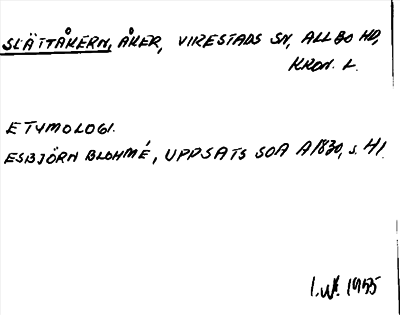 SLÄTTÅKERN, ÅKER, VIRESTADS SN, ALLBO HD,
KRON. L.
ETYMOLOGI.
ESBJÖRN BLOHMÉ, UPPSATS SOA A1830, s. 41.
I.W. 1955